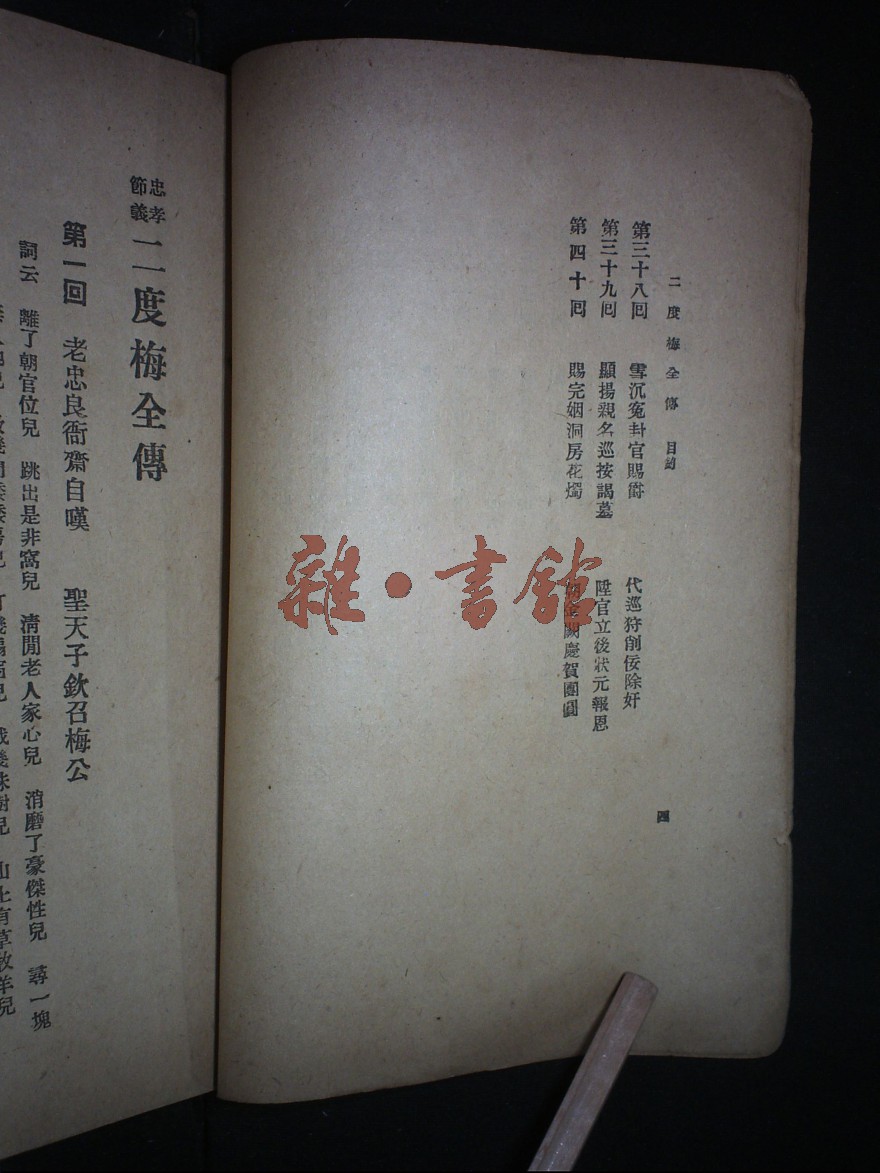 二度梅全傳 目錄
第三十八回 雪沉冤卦官賜爵 代巡狩削佞除奸
第三十九回 顯揚親名巡按謁墓 陞官立後狀元報恩
第四十回 賜完姻洞房花燭 金闕慶賀團圓
四
雜·書館
忠孝節義 二度梅全傳
第一回 老忠良衙齋自嘆 聖天子欽召梅公
詞云 離了朝官位兒 跳出是非窩兒 清閒老人家心兒 消磨了豪傑性兒 尋一塊